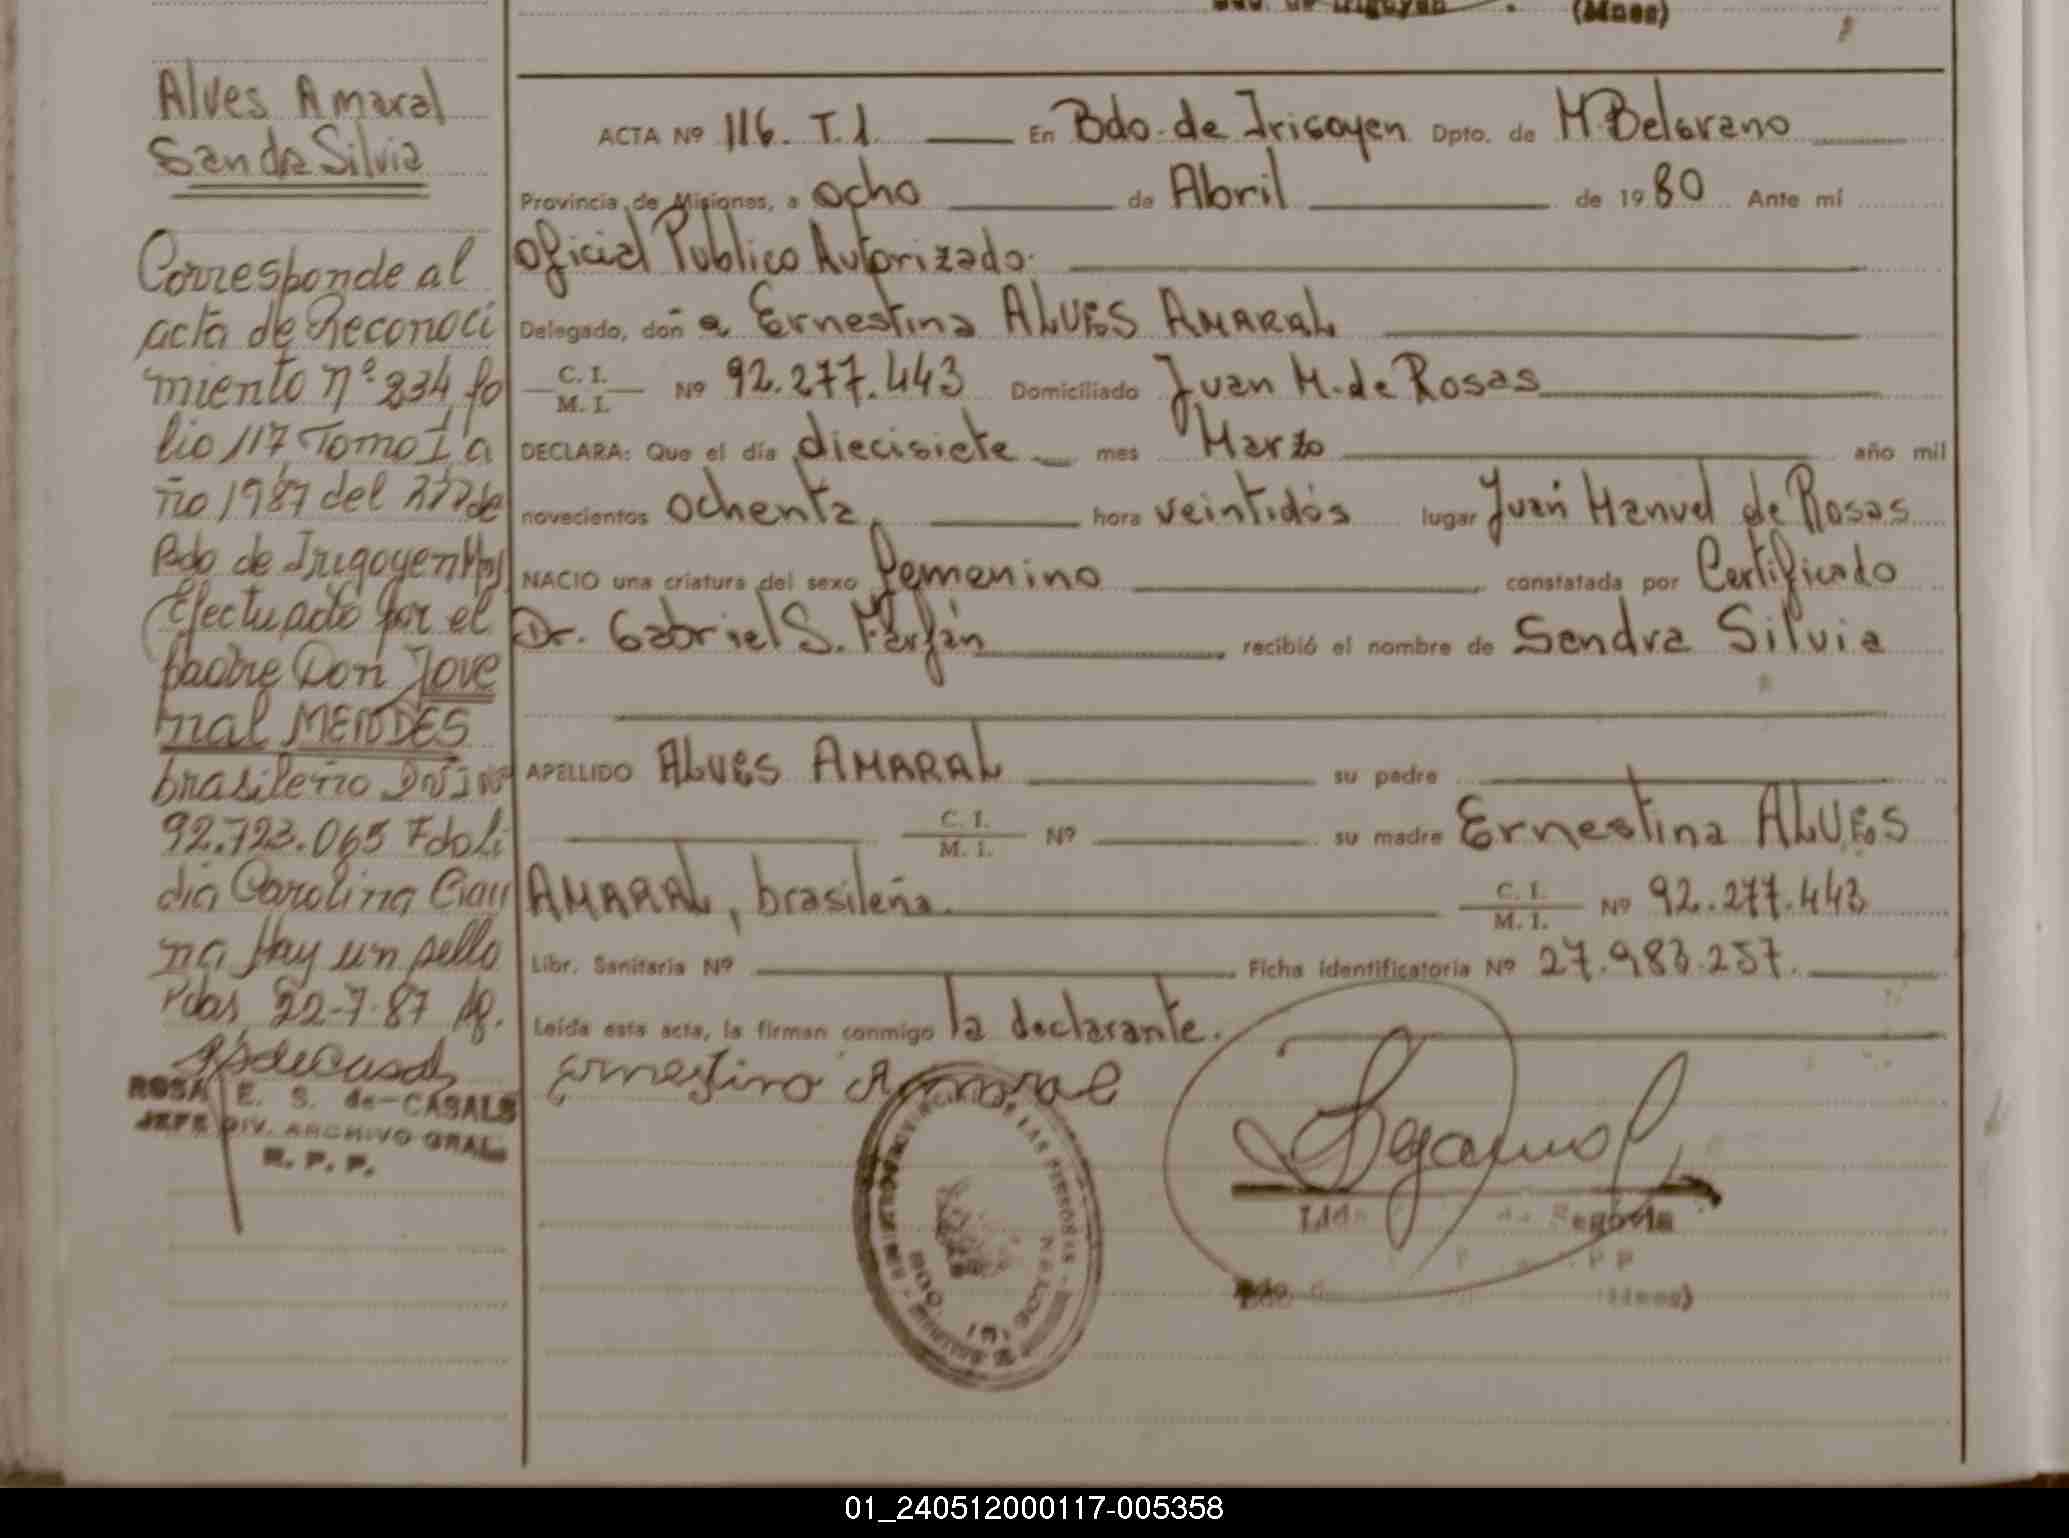 Bdo. de Irigoyen (Mnes)
Alves Amaral
Sandra Silvia
Corresponde al
acta de Reconoci
miento nº 234 fo
lio 117 Tomo I a
ño 1987 del
Bdo de Irigoyen Mnes
Efectuado por el
padre Don Jove
nal MENDES
brasileño DNI Nº
92.723.065 Fdo Li
dia Carolina
na Hay un sello
Pdas, 22-7-87
ROSA E. S. de CASALS
JEFE DIV. ARCHIVO GRAL.
R. P. P.
ACTA Nº 116. T.1. En Bdo. de Irigoyen Dpto. de M. Belgrano
Provincia de Misiones, a ocho de Abril de 1980 Ante mí
Oficial Publico Autorizado.
Delegado, doña Ernestina ALVES AMARAL
C. I.
M. I. Nº 92.277.443 Domiciliado Juan M. de Rosas
DECLARA: Que el día diecisiete mes Marzo año mil
novecientos ochenta, hora veintidós lugar Juan Manuel de Rosas
NACIO una criatura del sexo femenino constatada por Certificado
Dr. Gabriel S. Farfán recibió el nombre de Sandra Silvia
APELLIDO ALVES AMARAL su padre
C. I.
M. I. Nº su madre Ernestina ALVES
AMARAL, brasileña. C. I.
M. I. Nº 92.277.443
Libr. Sanitaria Nº Ficha identificatoria Nº 27.983.257.
Leída esta acta, la firman conmigo la declarante.
Ernestina Amaral
de Segovia
Bdo (Mnes)
01_240512000117-005358